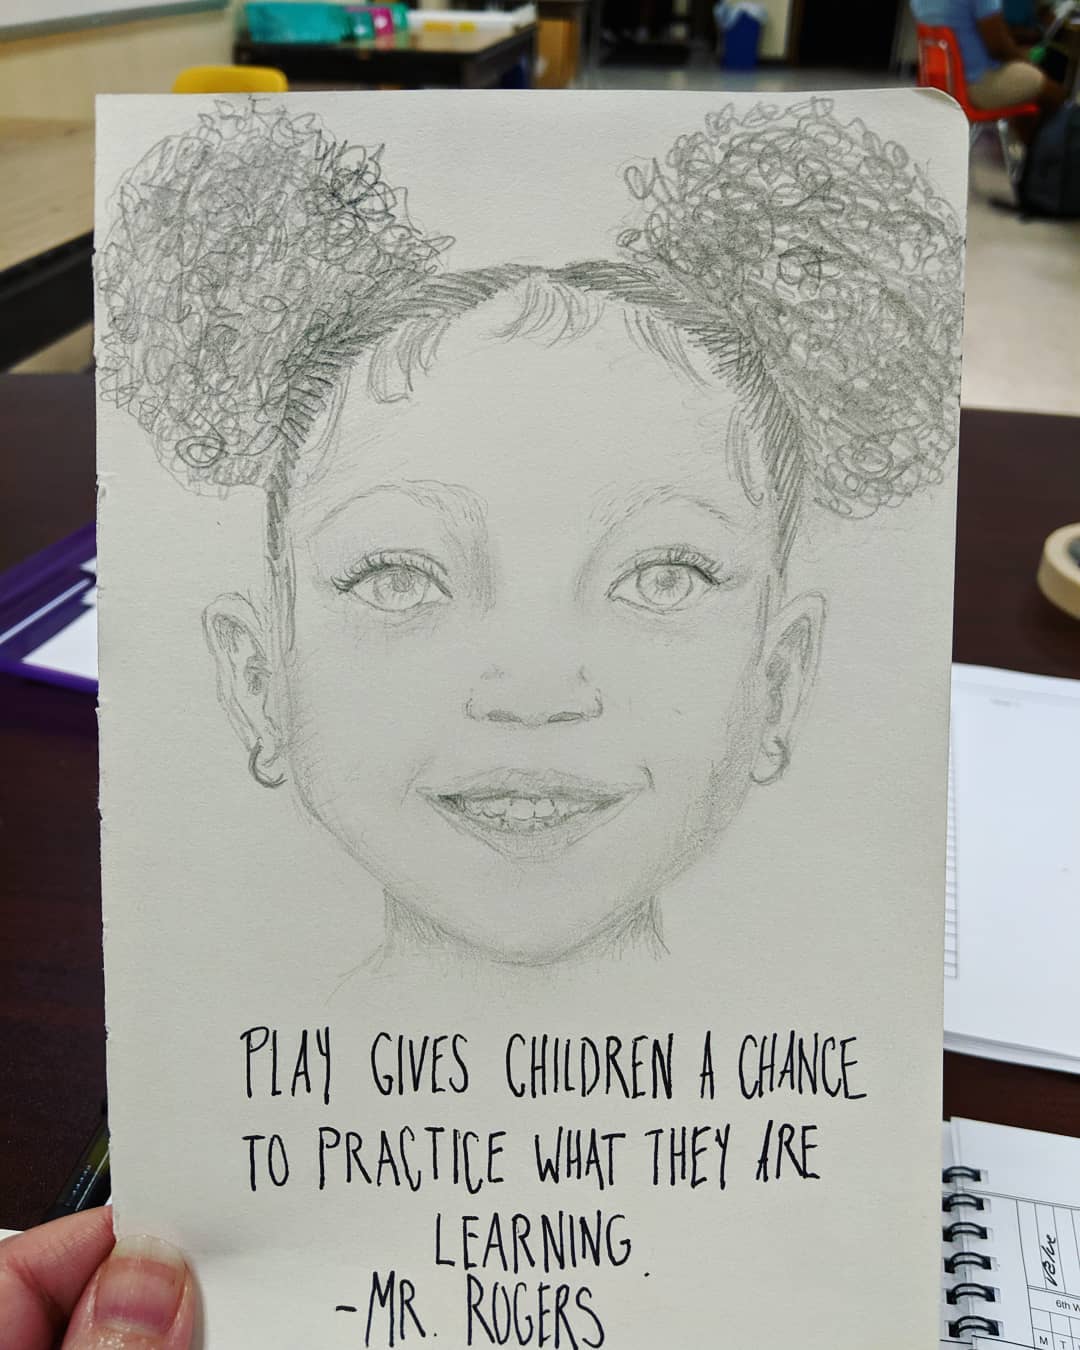 PLAY GIVES CHILDREN A CHANCE
TO PRACTICE WHAT THEY ARE
LEARNING.
-MR. ROGERS
6th W
M T